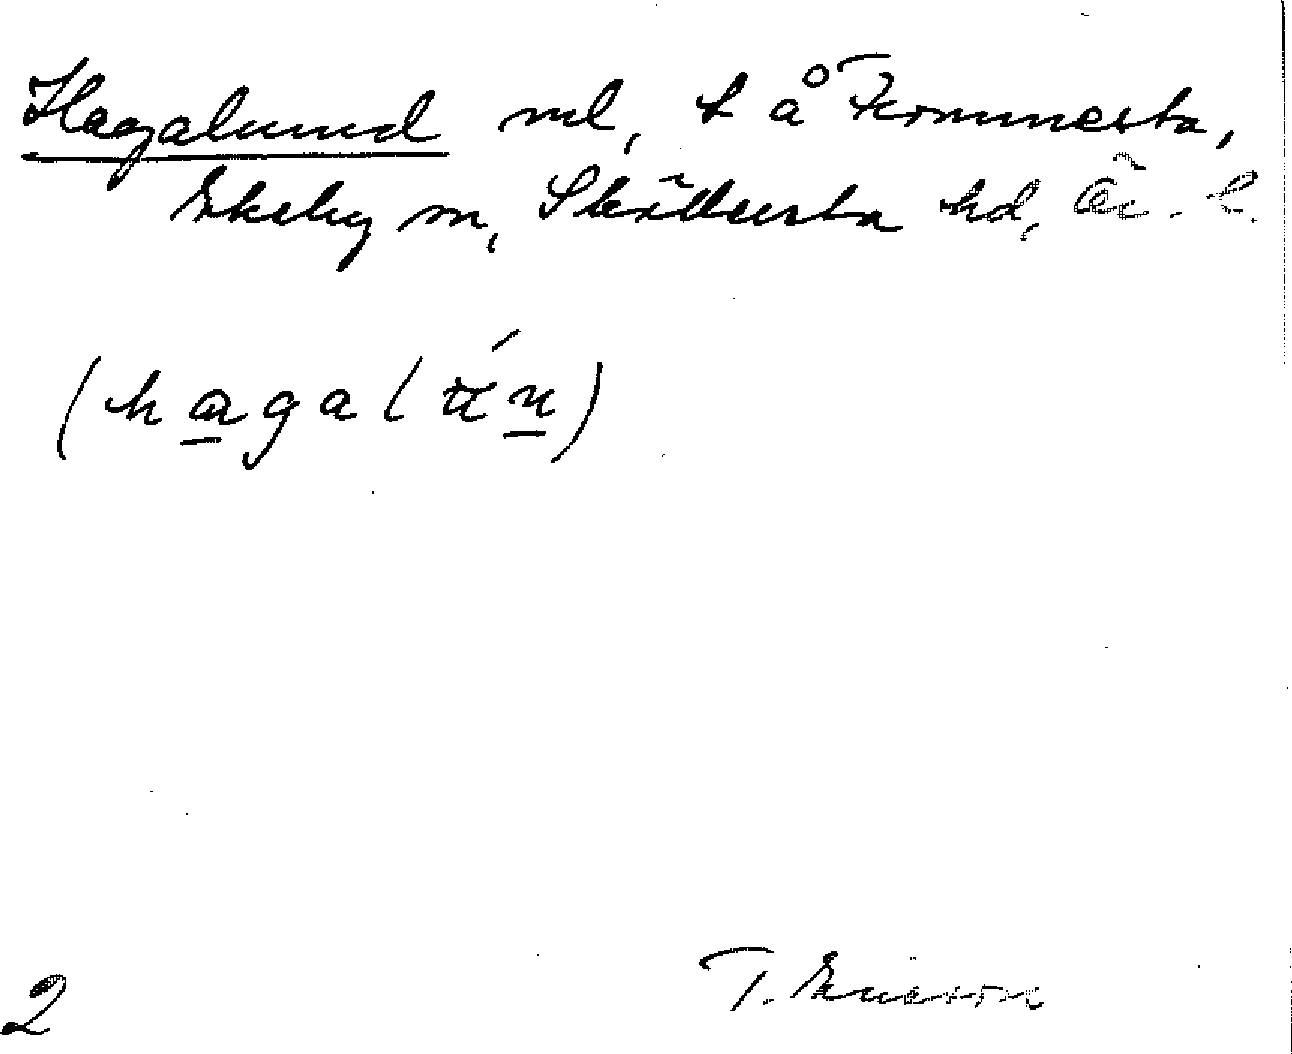 Hagalund ml, t å Frommesta,
Ekeby sn, Sköllersta hd, Är. l.
(hagalún)
T. Ericsson
2